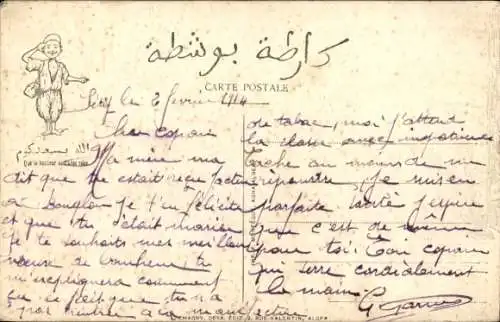 كارطة بوسطة
CARTE POSTALE
le 2 février 1914
Cher copain
Ma mère m'a
dit que tu étais reçu facteur
à je t'en félicite
et que tu t'étais marié
je te souhaite mes meilleurs
vœux de bonheur tu
m'expliqueras comment
ça se fait que tu n'a
pas rentrer a la manufacture
de tabac, moi j'attend
la classe avec impatience
Tache au moins de me
répondre, je suis en
parfaite santé j'espère
que c'est de même
pour toi. Ton copain
qui serre cordialement
la main